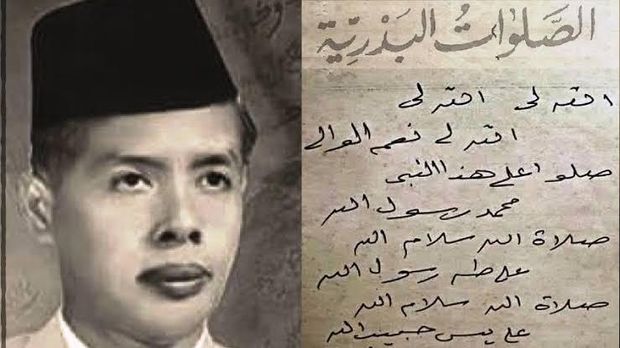 الصَّلَوَاتُ البَدْرِيَّة
الله لى الله لى
الله لى نعم الوالى
صلوا على هذا النبى
محمد رسول الله
صلاة الله سلام الله
على طه رسول الله
صلاة الله سلام الله
على يس حبيب الله